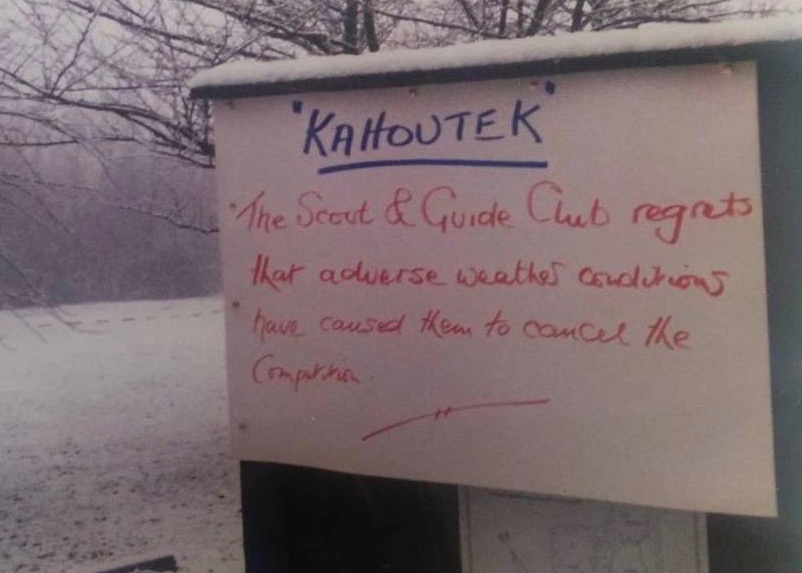 "KAHOUTEK"
The Scout & Guide Club regrets
that adverse weather conditions
have caused them to cancel the
Competition.